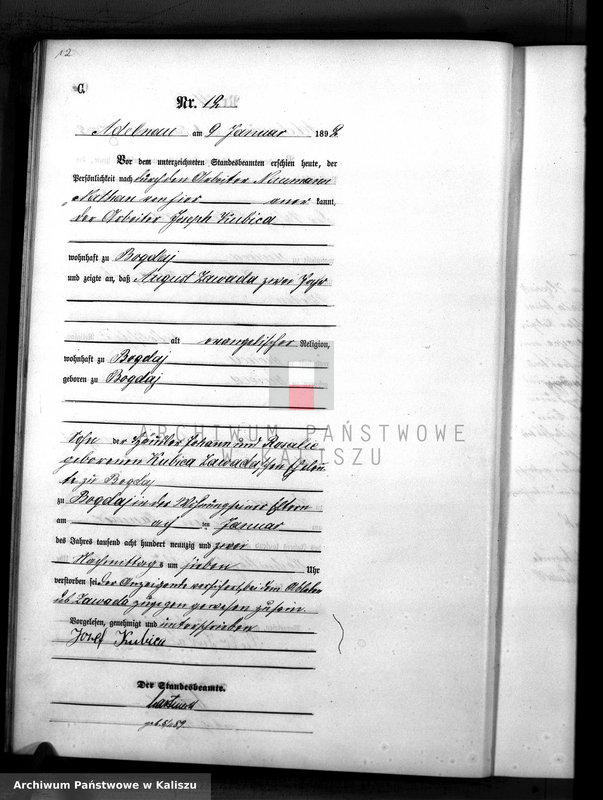 12
C.
Nr. 12
Adelnau am 9 Januar 1892
Vor dem unterzeichneten Standesbeamten erschien heute, der
Persönlichkeit nach durch den Arbeiter Naumann
Nathan von hier aner kannt,
der Arbeiter Joseph Kubica
wohnhaft zu Bogdaj
und zeigte an, daß August Zawada zwei Jahr
alt evangelischer Religion,
wohnhaft zu Bogdaj
geboren zu Bogdaj
Sohn der Häusler Johann und Rosalie
geborenen Kubica Zawada'schen Eheleu-
te zu Bogdaj
zu Bogdaj in der Wohnung seiner Eltern
am ten Januar
des Jahres tausend acht hundert neunzig und zwei
Nachmittags um sieben Uhr
verstorben sei der Anzeigende versichert bei dem Ableben
Zawada zugegen gewesen zu sein.
Vorgelesen, genehmigt und unterschrieben
Jozef Kubica
Der Standesbeamte.
ARCHIWUM PAŃSTWOWE
W KALISZU
Archiwum Państwowe w Kaliszu